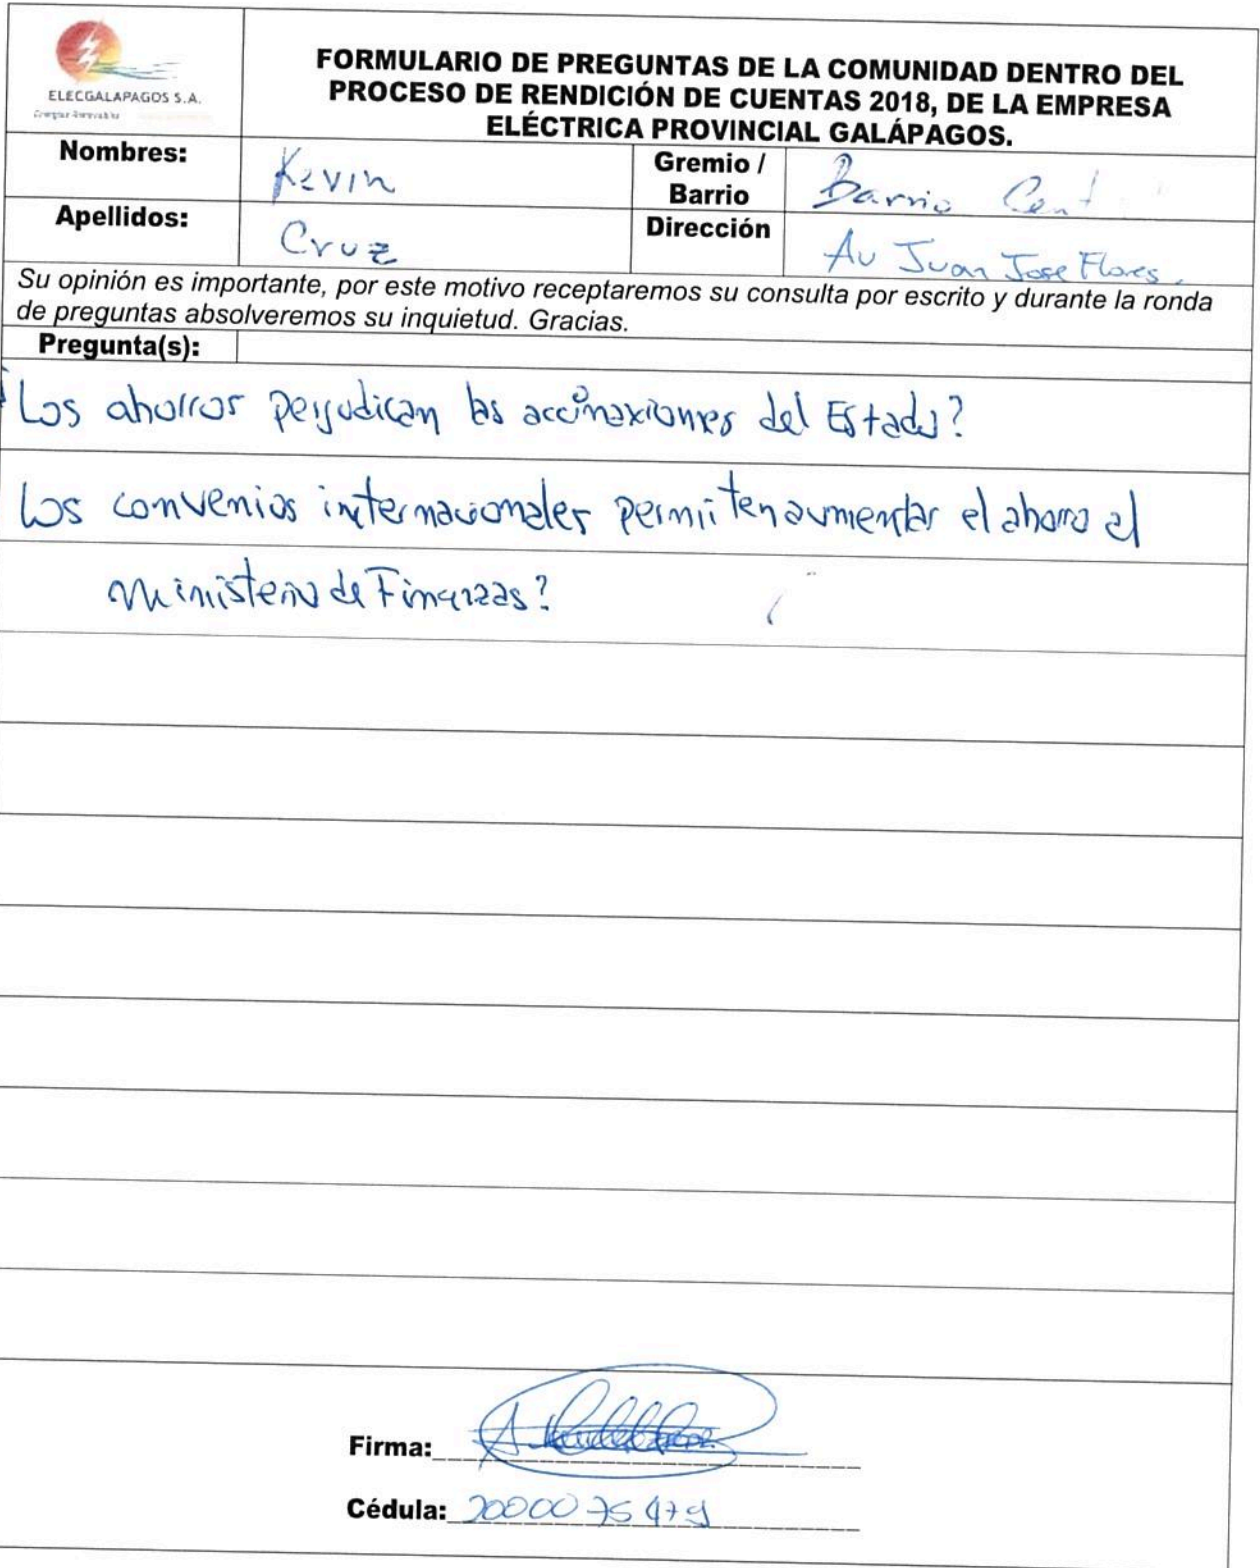 ELECGALAPAGOS S.A.
FORMULARIO DE PREGUNTAS DE LA COMUNIDAD DENTRO DEL
PROCESO DE RENDICIÓN DE CUENTAS 2018, DE LA EMPRESA
ELÉCTRICA PROVINCIAL GALÁPAGOS.
Nombres: Kevin Gremio / Barrio Barrio Cent
Apellidos: Cruz Dirección Av Juan Jose Flores.
Su opinión es importante, por este motivo receptaremos su consulta por escrito y durante la ronda
de preguntas absolveremos su inquietud. Gracias.
Pregunta(s):
¿Los ahorros perjudican las del Estado?
Los convenios internacionales permiten aumentar el ahorro al
ministerio de Finanzas?
Firma:
Cédula: 2000075479